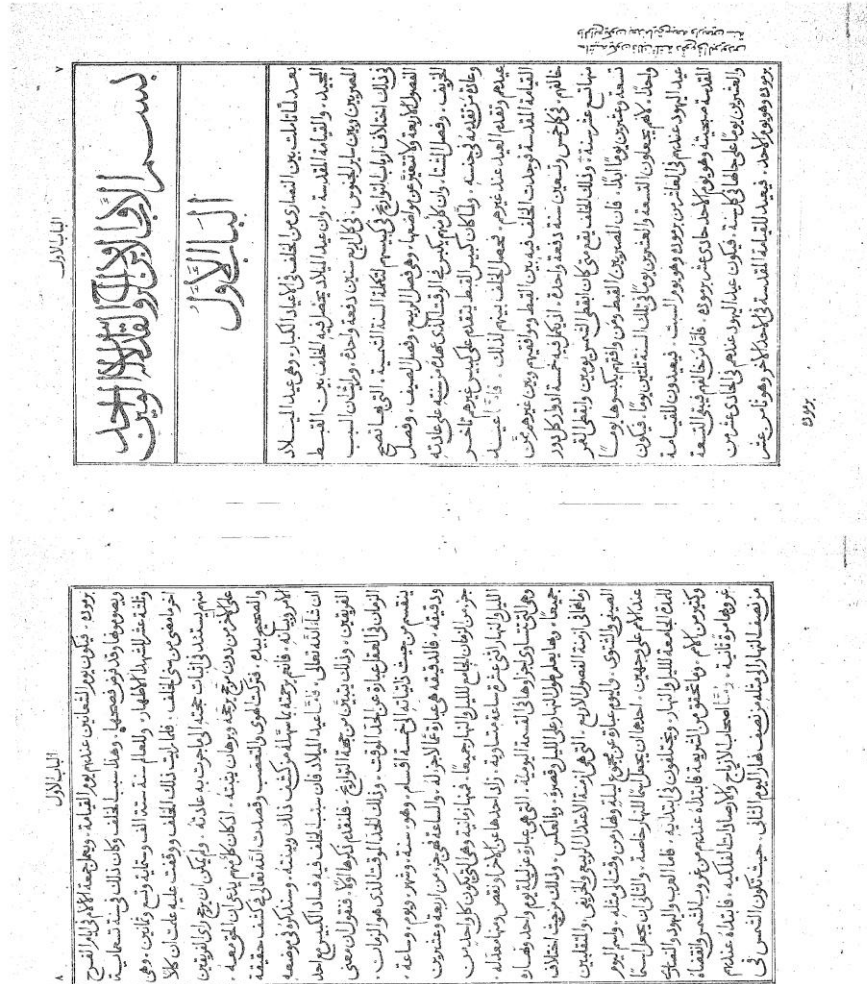 الباب الاول
٧
بسم الاب والابن والروح القدس الاله الواحد امين
الباب الاول
بعد لما تاملت بين النصارى من الخلف فى الاعياد الكبار. وهى عيد الميلاد
المجيد. والقيامة المقدسة. وان عيد الميلاد يحصل فيه الخلف بين القبط
المصريين وبين ساير الجنوس. فى كل اربع سنين دفعة واحدة. ورايت ان السبب
فى ذلك اختلاف ارباب التواريخ فى كبيسهم لتكملة السنة الشمسية. التى بها تصح
الفصول الاربعة ولا تتغير عن مواضعها. وهى فصل الربيع. وفصل الصيف. وفصل
الخريف. وفصل الشتا. وان كل منهم يكبس فى الوقت الذى عهده من سنته على عادته
وعادة من تقدمه فى جنسه. ولما كان كبيس القبط يتقدم على كبيس غيرهم تاخر
عيدهم وتقدم العيد عند غيرهم. فحصل الخلف بينهم لذلك. فاما عيد
القيامة المقدسة فوجدت الخلف فيه بين القبط وموافقيهم وبين غيرهم ممن
خالفهم. فى كل خمس وتسعين سنة دفعة واحدة. اذ يكمل فيه خمسة ادوار كل دور
منها تسع عشر سنة. وذلك الخلف يقع متى كان ابقطى الشمس يومين وابقطى القمر
تسعة وعشرين يوما ابدا. فان المصريين القبط ومن وافقهم يكبسوها يوما
واحدا. لانهم يجعلون التسعة والعشرين يوما فى تلك السنة ثلثين يوما. فيكون
عيد اليهود عندهم فى العاشر من برموده وهو يوم السبت. فيعيدون للقيامة
المقدسة صبحته وهو يوم الاحد حادى عشر برموده. فاما من خالفهم فيبقى التسعة
والعشرين يوما على حالها فى كل سنة. فيكون عيد اليهود عندهم فى الحادى عشر من
برموده وهو يوم الاحد. فيعيد القيامة المقدسة فى الاحد الاخر وهو ثامن عشر
برموده
الباب الاول
٨
برموده. فيكون يوم الشعانين عندهم يوم القيامة. ويعمل جمعة الالام فى ايام الفرح
ويصومها وقد فرض فصحها. وهذا سبب الخلف وكان ذلك فى سنة تسعماية
وثلثة عشر للشهدا الاطهار. وللعالم سنة ستة الف وستماية وتسع وثمانين. وهى
اخر ما مضى من سنى الخلف. فلما رايت ذلك الخلف ووقفت عليه علمت ان كلا
منهم يستند فى اثبات حجته الى ما جرت به عادته. ولم يمكن ان يرجح راى الفريقين
على الاخر من دون مرجح يرجحه وبرهان يثبته. اذ كان كل منهم يدعى ان الحق معه.
والصحيح بيده. فتركت الهوى والتعصب وقصدت الله تعالى فى كشف حقيقة
الامر وبيانه. فانعم برحمته بما سهله من كشف ذلك وبينته. وسنذكره فى موضعه
ان شاء الله تعالى. فاما عيد الميلاد فان سبب الخلف فيه فساد الكبيس مع احد
الفريقين. وذلك تبيين من جهة التواريخ. فلنقدم ذكرها اولا. فنقول ان معنى
الزمان فى العقل عبارة عن الحد الموقت. وذلك الحد الموقت الذى هو الزمان.
ينقسم من حيث ذاتياته الى خمسة اقسام. وهو. سنة. وشهر. ويوم. وساعة.
ودقيقه. فالدقيقه هى عبارة عما لا جزء له. والساعة فهو جزء من اربعة وعشرين
جزء من الزمان الجامع لليل والنهار جميعا. فمنها زمانية وهى التى تكون كل واحد من
الليل والنهار اثنى عشرة ساعة متساوية. زاد احدها عن الاخر او نقص ومنها معتدله.
وهى التى تتساوى اجزاوها فى القسمة اليومية. التى هى عبارة عن ليلة يوم واحد ونهاره
جميعا. وبها يعلم طول النهار على الليل وقصره. وبالعكس. وذلك من حيث اختلاف
زمانهما فى ازمنة الفصول الاربع. التى هى ازمنة الاعتدال الربيعى والخريفى. والمنقلبين
الصيفى والشتوى. واليوم عبارة عن مجموع ليلة ونهار من وقت الى مثله. واسم اليوم
عند الامم على وجهين. احدهما ان يجعل اسما للنهار خاصة. والثانى ان يجعل اسما
للمدة الجامعة لليل والنهار. ويختلفون فى ابتدائه. فاما العرب واليهود والنصارى
وكثير من الامم. وما تحقق من الشريعة فابتداه عندهم من غروب الشمس والقضاه
غروبها مرة ثانية. واما اصحاب الازياج والارصادات الفلكيه. فابتداه عندهم
من نصف النهار الى مثله من نصف نهار اليوم الثانى. حيث تكون الشمس فى